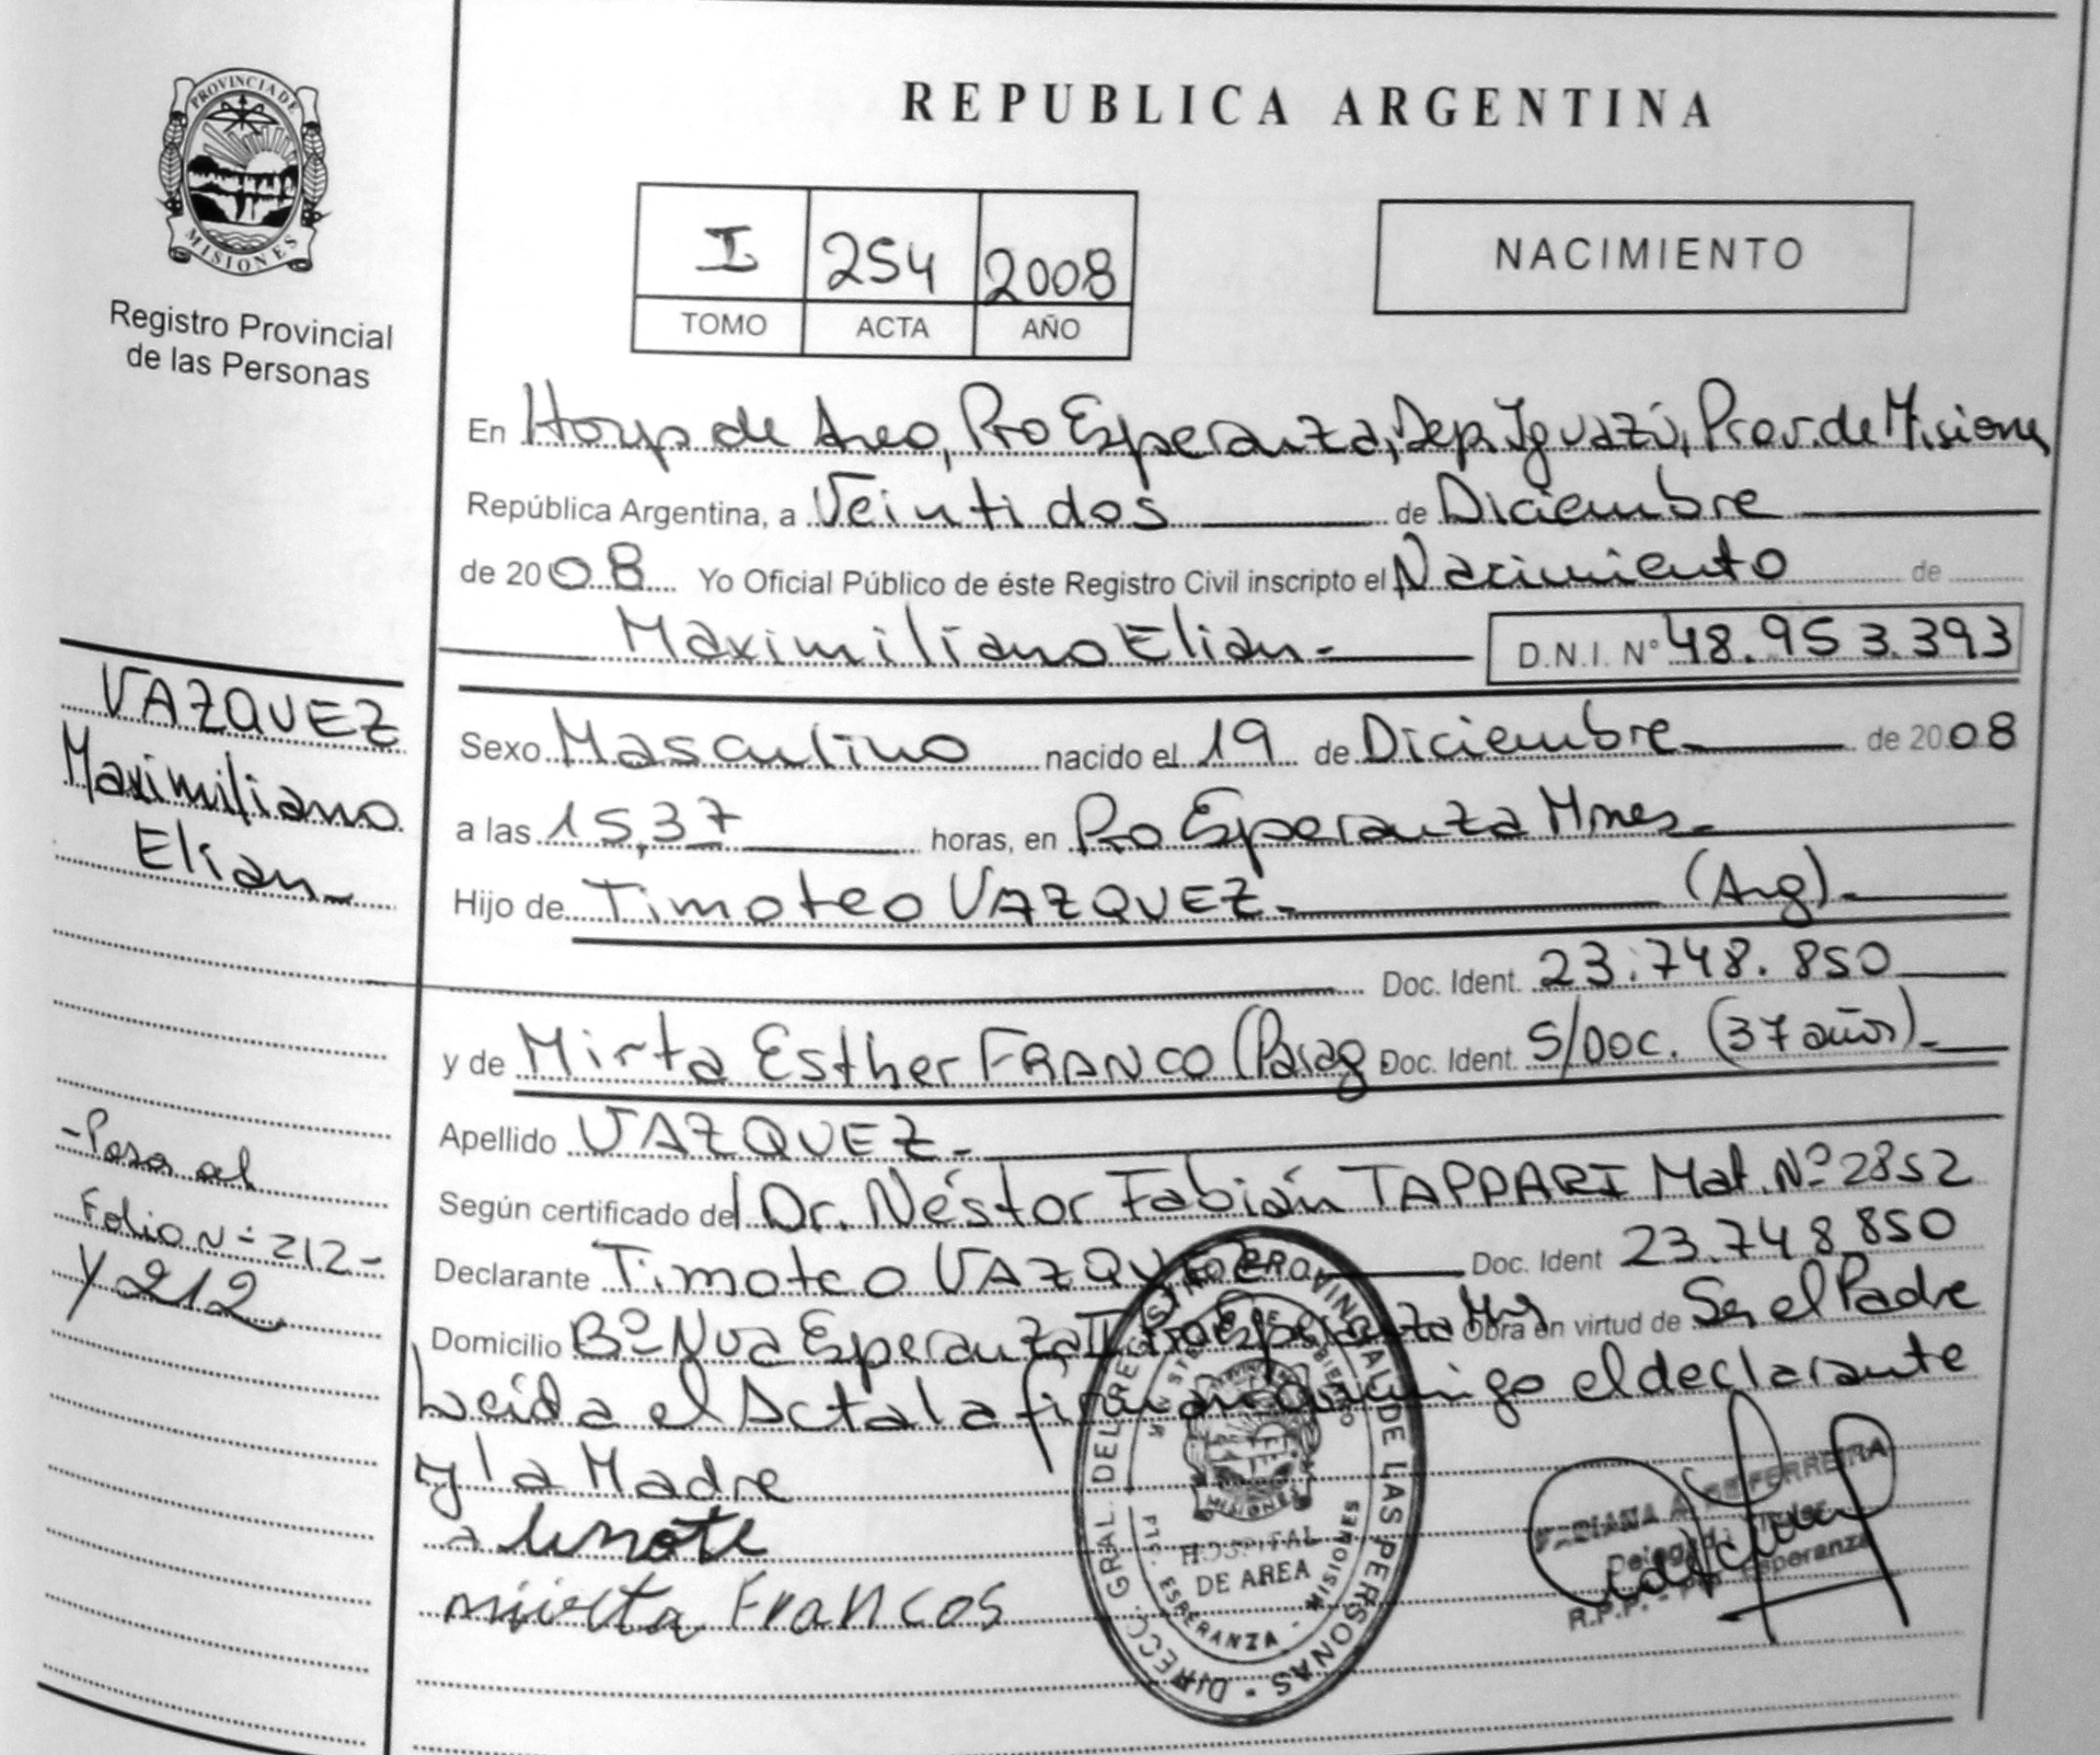 PROVINCIA DE
MISIONES
Registro Provincial
de las Personas
REPUBLICA ARGENTINA
I 254 2008
TOMO ACTA AÑO
NACIMIENTO
En Hosp de Area, Pto Esperanza, Dep. Iguazú, Prov. de Misiones
República Argentina, a Veintidos de Diciembre
de 2008 Yo Oficial Público de éste Registro Civil inscripto el Nacimiento de
Maximiliano Elian- D.N.I. Nº 48.953.393
VAZQUEZ
Maximiliano
Elian-
Sexo Masculino nacido el 19 de Diciembre- de 2008
a las 15,37 horas, en Pto Esperanza Mnes-
Hijo de Timoteo VAZQUEZ- (Arg)-
Doc. Ident. 23.748.850
y de Mirta Esther FRANCO (Parag Doc. Ident. S/DOC. (37 años)-
Apellido VAZQUEZ-
Según certificado del Dr. Néstor Fabián TAPPARI Mat. Nº 2852
Declarante Timoteo VAZQUEZ Doc. Ident 23.748.850
Domicilio Bº Nva Esperanza II Pto Esperanza Mnes Obra en virtud de Ser el Padre
Leida el Acta la firman conmigo el declarante
y la Madre
mirta Francos
-Pasa al
Folio Nº 212-
Y 212
DIRECC. GRAL. DEL REGISTRO PROVINCIAL DE LAS PERSONAS
MISIONES
HOSPITAL
DE AREA
PTO. ESPERANZA - MISIONES
FABIANA A. DE FERREIRA
Delegada Titular
R.P.P. - Pto. Esperanza